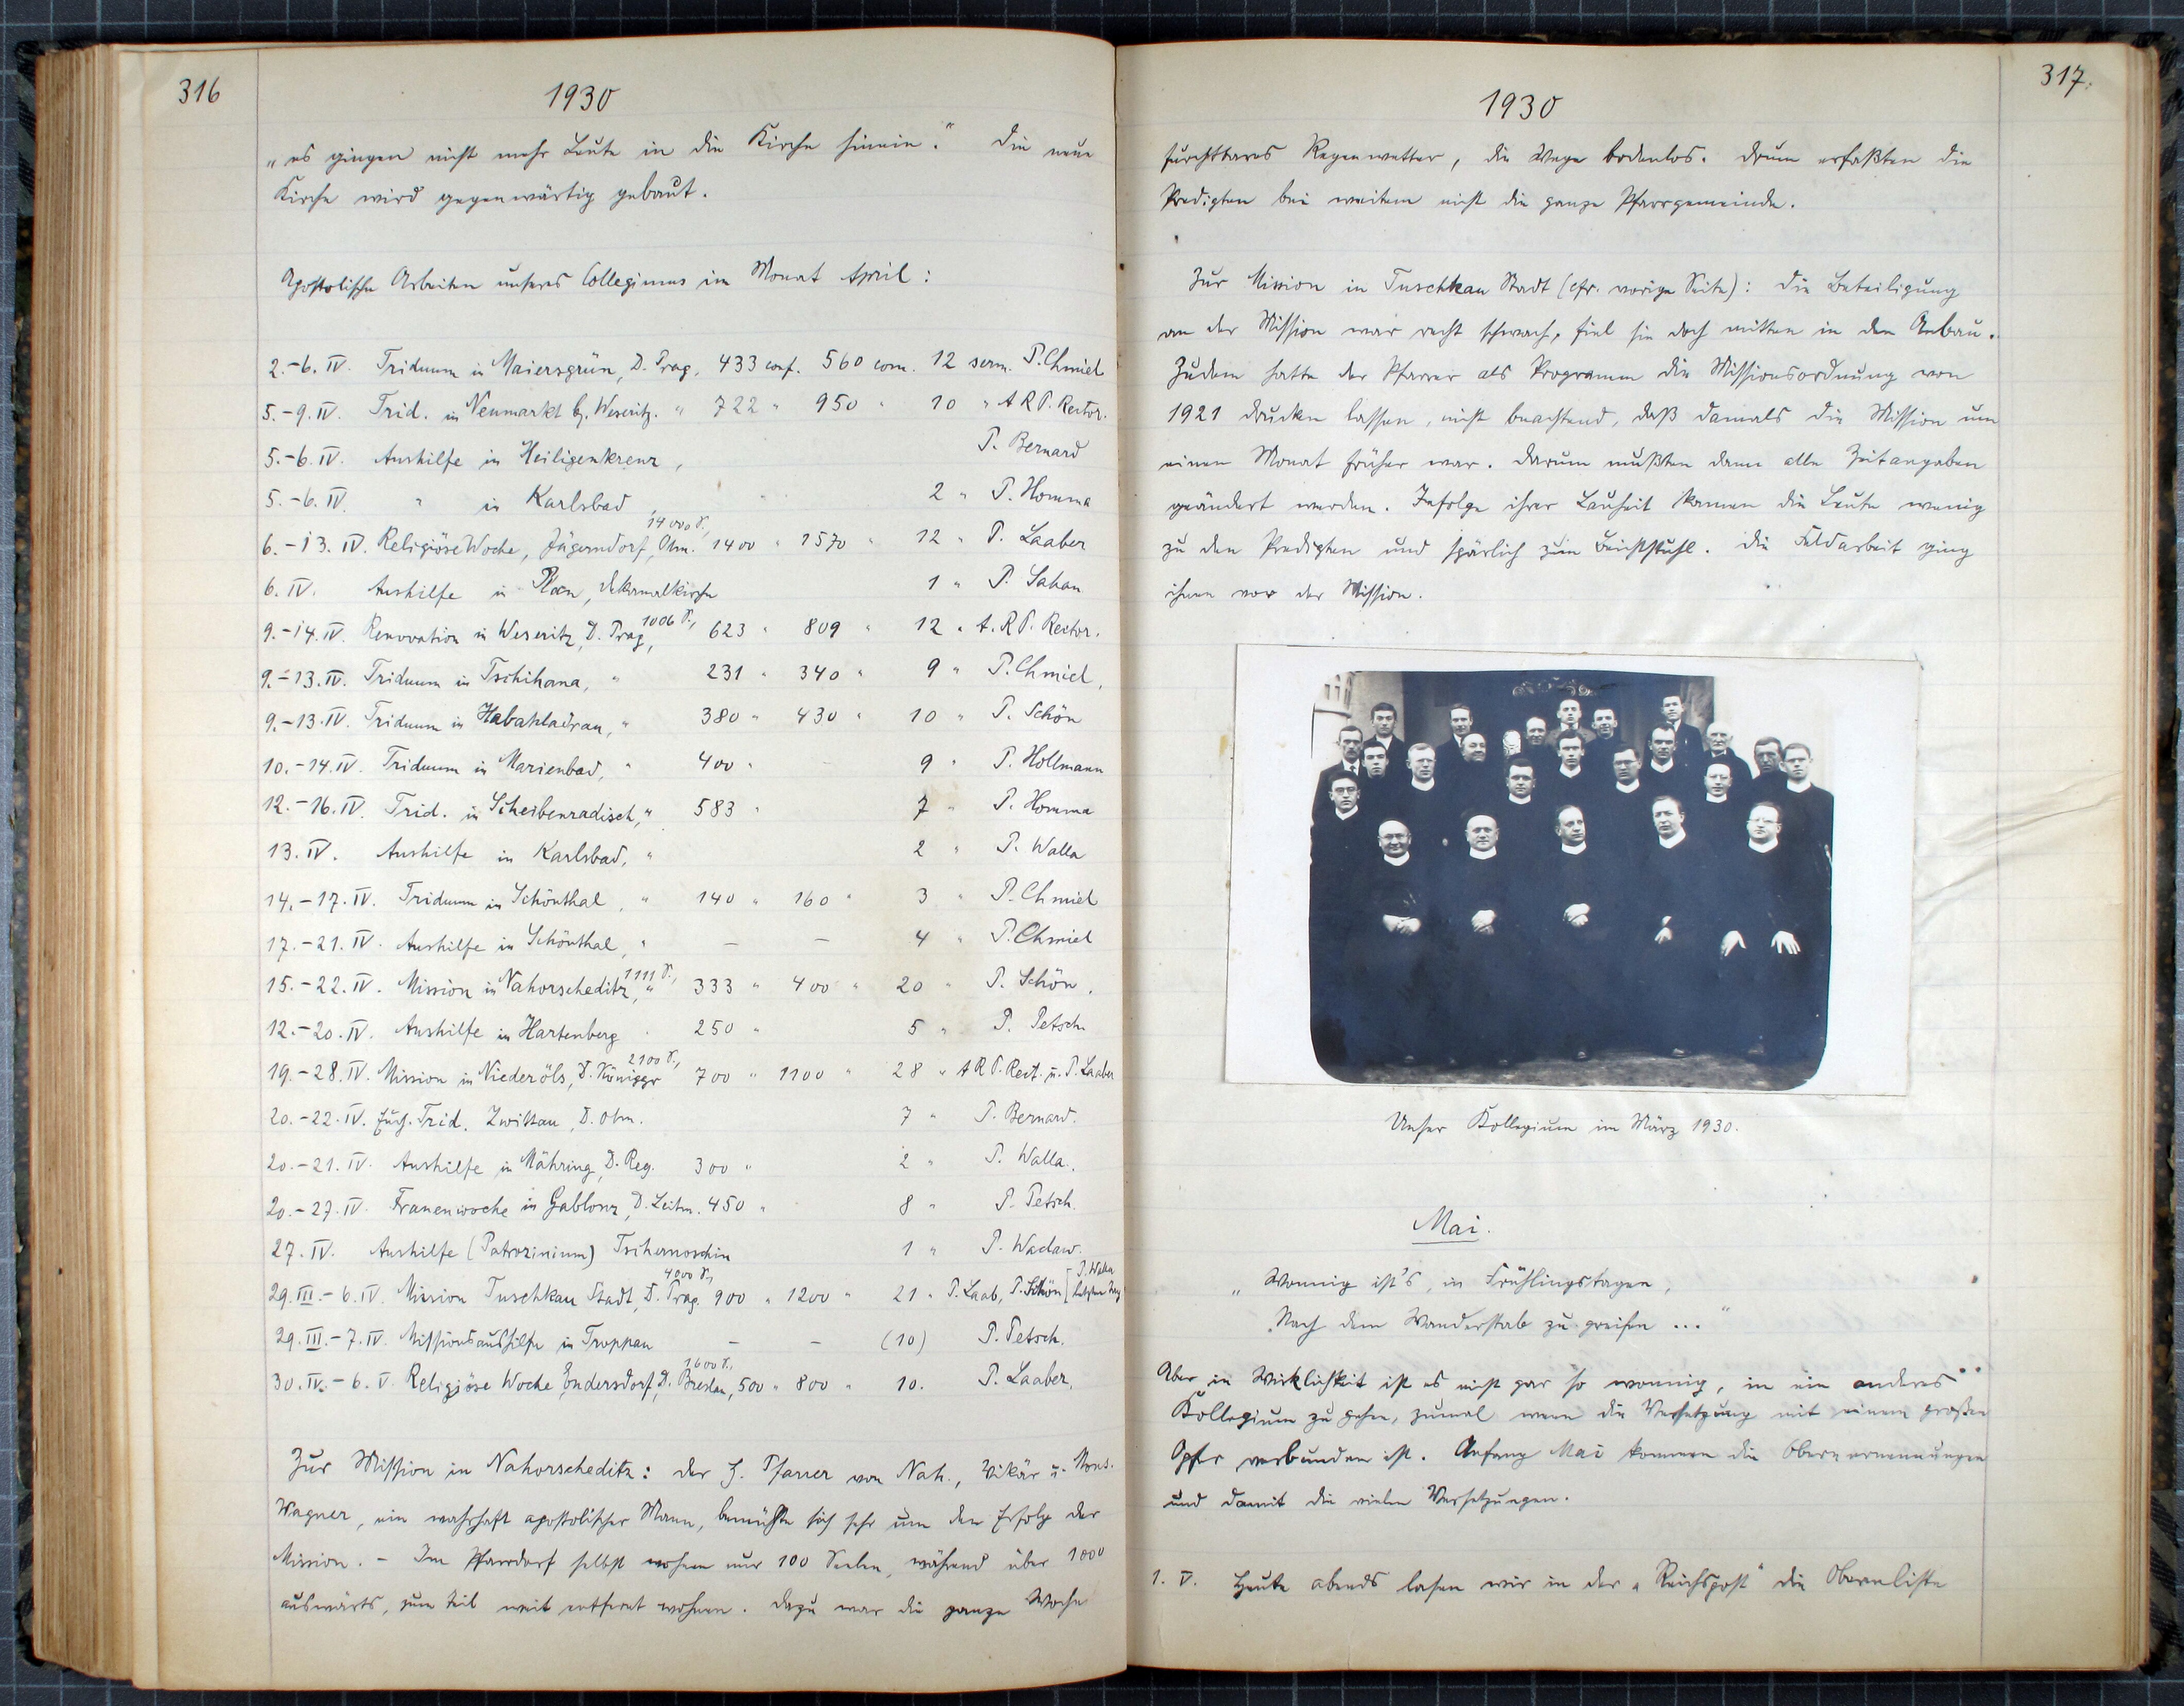 316
1930
„es gingen nicht mehr Leute in die Kirche hinein.“ Die neue
Kirche wird gegenwärtig gebaut.
Apostolische Arbeiten unseres Collegiums im Monat April:
2.-6. IV. Triduum in Maiersgrün, D. Prag, 433 conf. 560 com. 12 serm. P. Chmiel
5.-9. IV. Trid. in Neumarkt b. Weseritz. " 722 " 950 " 10 " A R P. Rector.
5.-6. IV. Aushilfe in Heiligenkreuz, P. Bernard
5.-6. IV. " in Karlsbad, 2 " P. Homma
6.-13. IV. Religiöse Woche, Jägerndorf, Olm. 14000 S., 1400 " 1570 " 12 " P. Laaber
6. IV. Aushilfe in Plan, Dekanalkirche 1 " P. Sahan
9.-14. IV. Renovation in Weseritz, D. Prag, 1006 S., 623 " 809 " 12 " A. R P. Rector.
9.-13. IV. Triduum in Tschihana, " 231 " 340 " 9 " P. Chmiel,
9.-13. IV. Triduum in Habakladrau, " 380 " 430 " 10 " P. Schön
10.-14. IV. Triduum in Marienbad, " 400 " – 9 " P. Hollmann
12.-16. IV. Trid. in Scheibenradisch, " 583 " 7 " P. Homma
13. IV. Aushilfe in Karlsbad, " 2 " P. Walla
14.-17. IV. Triduum in Schönthal, " 140 " 160 " 3 " P. Chmiel
17.-21. IV. Aushilfe in Schönthal, " – – 4 " P. Chmiel
15.-22. IV. Mission in Nahorscheditz, 1111 S., " 333 " 400 " 20 " P. Schön.
12.-20. IV. Aushilfe in Hartenberg 250 " 5 " P. Petsch.
19.-28. IV. Mission in Niederöls, D. Königgr 2100 S., 700 " 1100 " 28 " A R P. Rect. u. P. Laaber
20.-22. IV. Euch. Trid. Zwittau, D. Olm. 7 " P. Bernard.
20.-21. IV. Aushilfe in Mähring, D. Reg. 300 " 2 " P. Walla.
20.-27. IV. Frauenwoche in Gablonz, D. Leitm. 450 " 8 " P. Petsch.
27. IV. Aushilfe (Patrozinium) Tschernoschin 1 " P. Waclaw.
29. III.-6. IV. Mission Tuschkau Stadt, D. Prag. 4000 S., 900 " 1200 " 21 " P. Laab, P. Schön [P. Walla letzten Tag
29. III.-7. IV. Missionsaushilfe in Troppau – – (10) P. Petsch.
30. IV.-6. V. Religiöse Woche Endersdorf, D. Breslau, 1600 S., 500 " 800 " 10. P. Laaber.
Zur Mission in Nahorscheditz: Der H. Pfarrer von Nah., Vikär u. Mons.
Wagner, ein wahrhaft apostolischer Mann, bemühte sich sehr um den Erfolg der
Mission. – Im Pfarrdorf selbst wohnen nur 100 Seelen, während über 1000
auswärts, zum Teil weit entfernt wohnen. Dazu war die ganze Woche
317.
1930
furchtbares Regenwetter, die Wege bodenlos. Drum erfaßten die
Predigten bei weitem nicht die ganze Pfarrgemeinde.
Zur Mission in Tuschkau Stadt (cfr. vorige Seite): Die Beteiligung
an der Mission war recht schwach, fiel sie doch mitten in den Anbau.
Zudem hatte der Pfarrer als Programm die Missionsordnung von
1921 drucken lassen, nicht beachtend, daß damals die Mission um
einen Monat früher war. Darum mußten dann alle Zeitangaben
geändert werden. Infolge ihrer Lauheit kamen die Leute wenig
zu den Predigten und spärlich zum Beichtstuhl. Die Feldarbeit ging
ihnen vor der Mission.
Unser Kollegium im März 1930.
Mai.
„Wonnig ist's, in Frühlingstagen,
Nach dem Wanderstab zu greifen ...“
Aber in Wirklichkeit ist es nicht gar so wonnig, in ein anderes
Kollegium zu gehen, zumal wenn die Versetzung mit einem großen
Opfer verbunden ist. Anfang Mai kommen die Obernernennungen
und damit die vielen Versetzungen.
1. V. Heute abends lasen wir in der „Reichspost“ die Obernliste